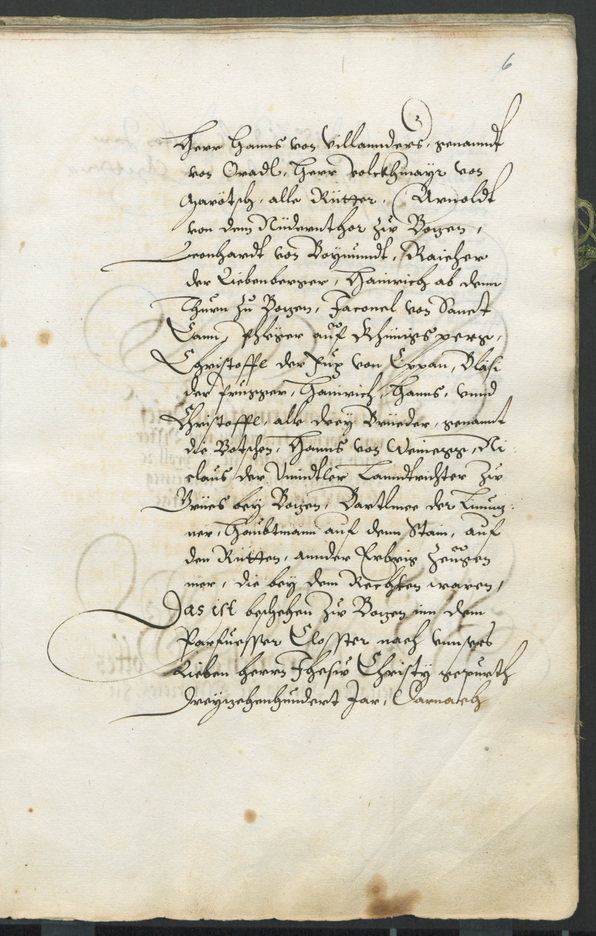 6
Herr Hanns von Villannders, genanndt
von Pradl, Herr Volckhmayr von
Garötsch, alle Rütter, Arnoldt
von dem Nidernthor zu Bozen,
Leonhardt von Boymundt, Raicher
der Liebenberger, Hainrich ab dem
Thurn zu Bozen, Jaconel von Sanct
Pfleger auf
Christoffl der Fux von Eppan, Bläsi
der Prugger, Hainrich, Hanns, vnnd
Christoffl, alle drey Brüeder, genannt
die Botschen, Hanns von Weinegg, Ni
claus der Vinndtler Lanndtrichter zu
Gries bey Bozen, Bartlmee der
ner, Haubtmann auf dem Stain, auf
den Ritten, annder Erberg Zeugen
mer, die bey dem Rechten waren,
Das ist beschehen zu Bozen inn dem
Parfuesser Closster nach vnnsers
Lieben herrn Jhesu Christy gepurth
Dreyzehenhundert Jar, Darnach